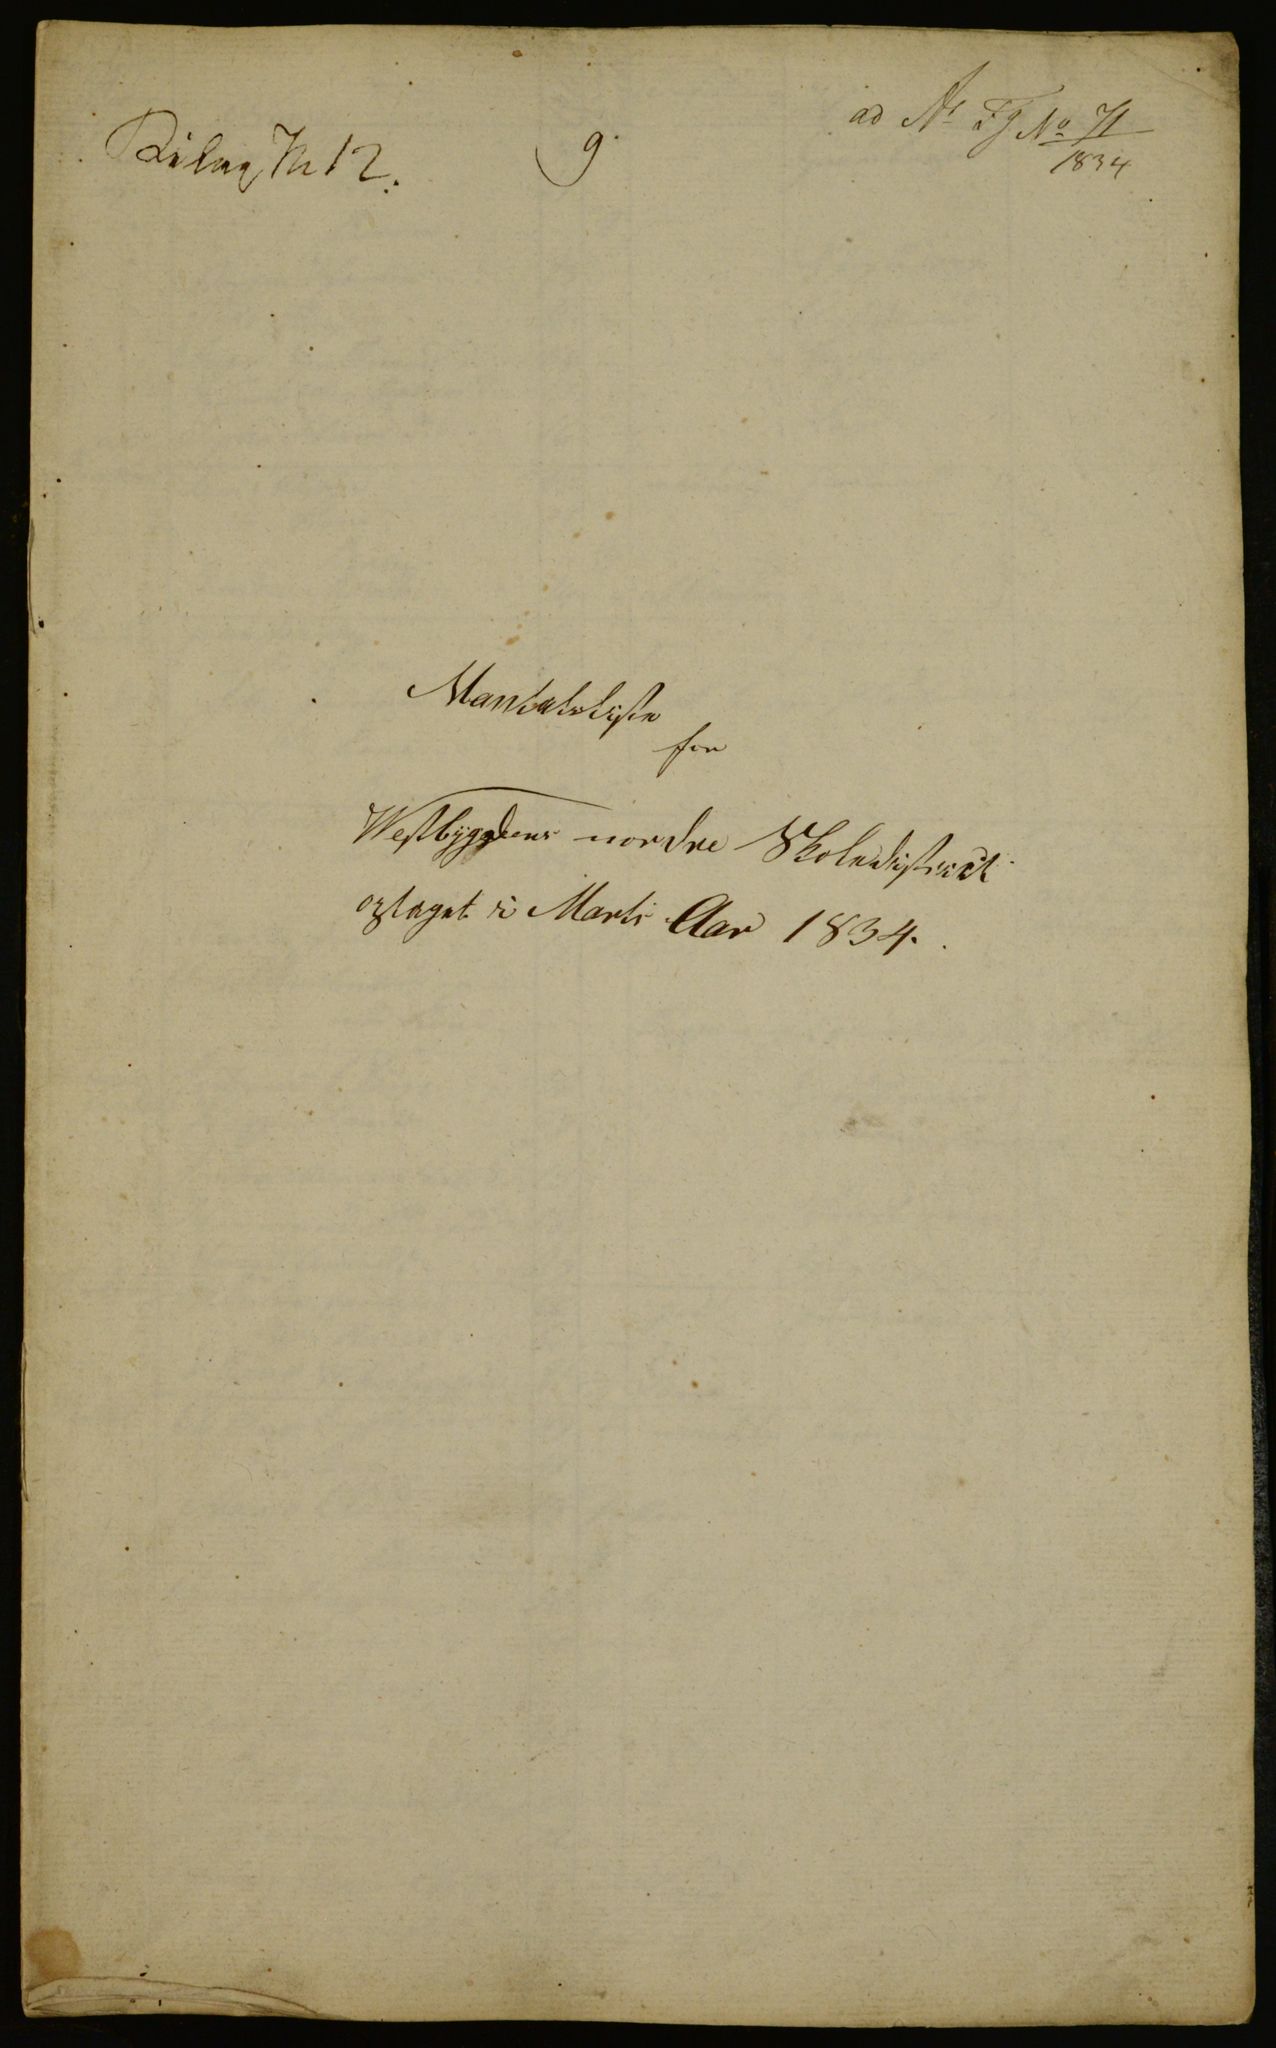 Bilag No 12.
9.
ad No 71
1834
Mandtalsliste
for
Westbygdens nordre Skoledistrict
optaget i Marts Aar 1834.